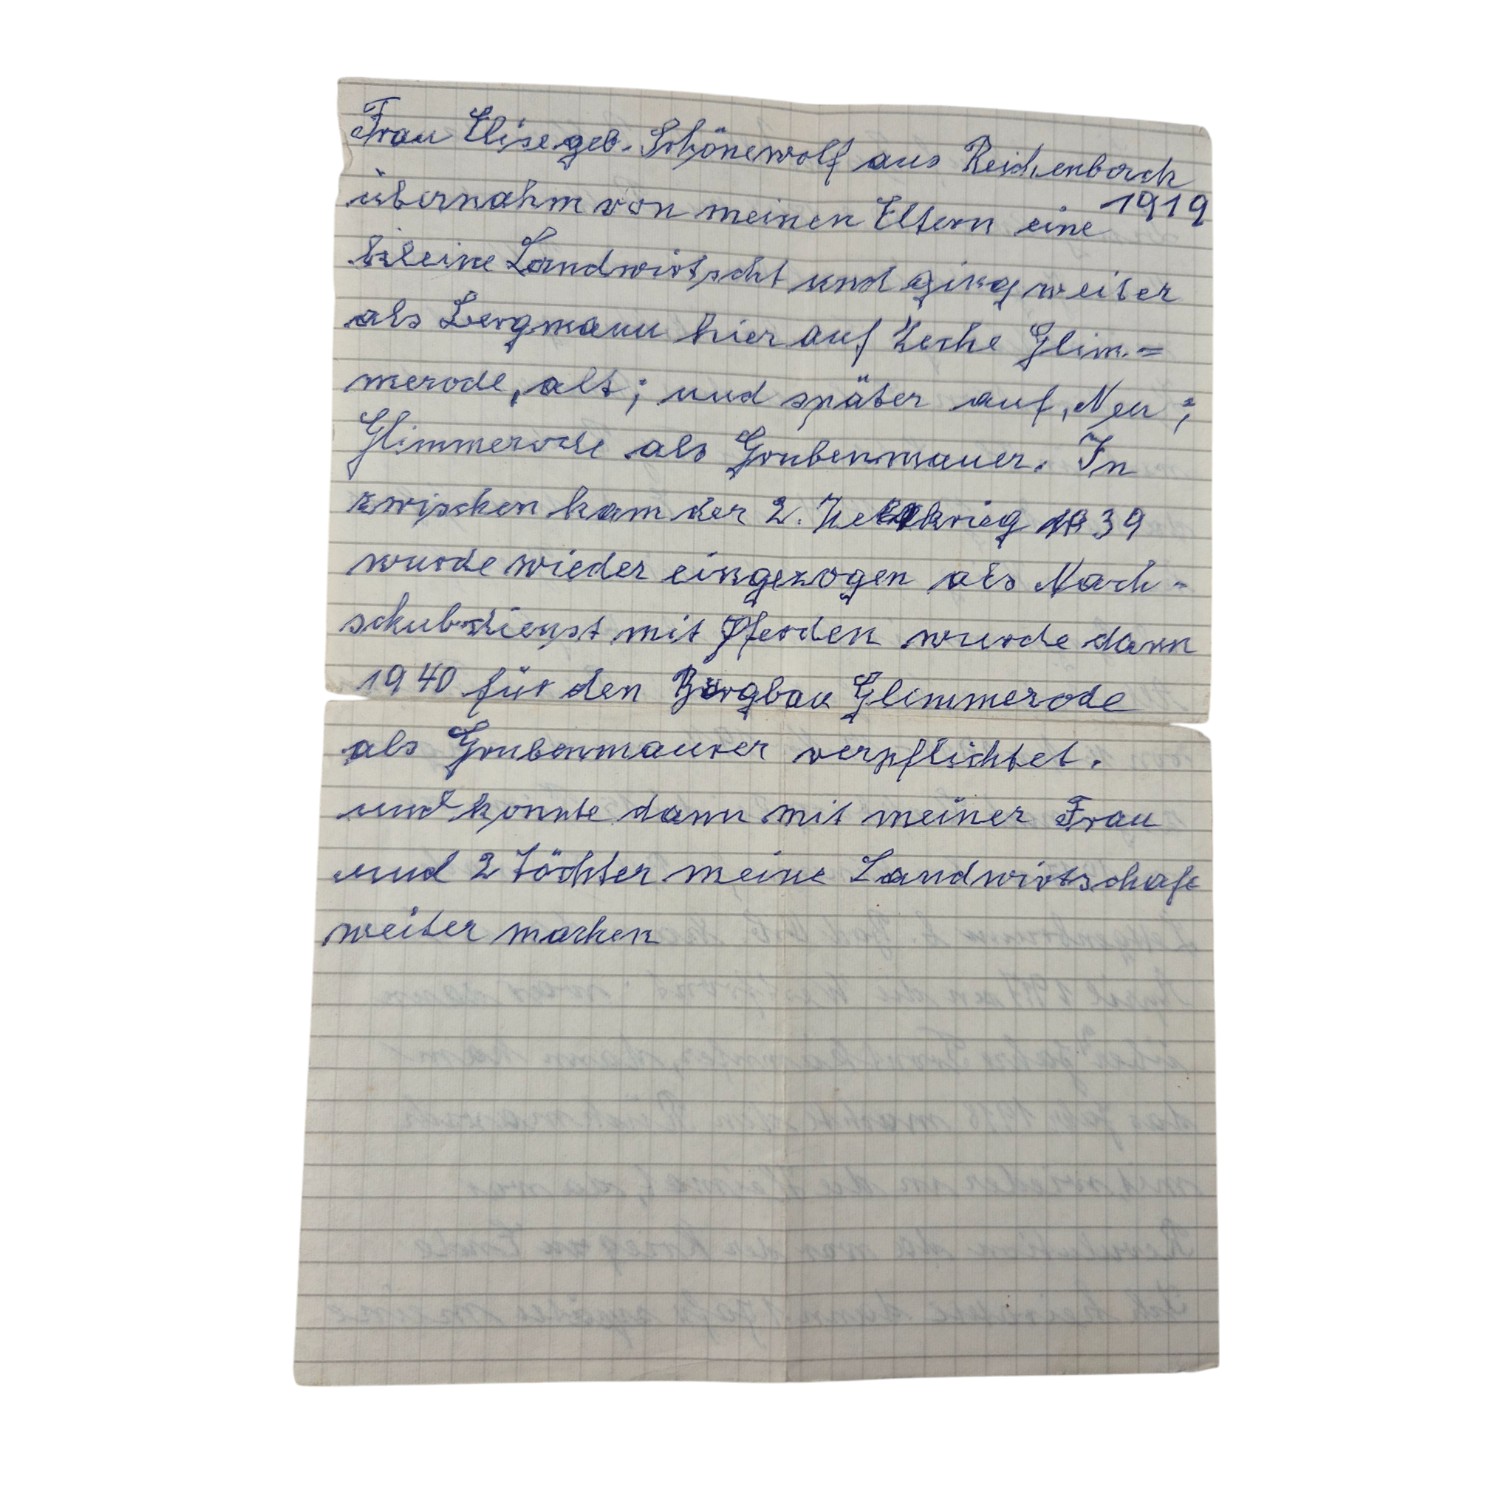 Frau Elise geb. Schönewolf aus Reichenbach
übernahm von meinen Eltern eine 1919
kleine Landwirtscht und ging weiter
als Bergmann hier auf Zeche Glim=
merode, alt; und später auf, Neu;
Glimmerode als Grubenmauer. In
zwischen kam der 2. Weltkrieg 1939
wurde wieder eingezogen als Nach-
schubdienst mit Pferden wurde dann
1940 für den Bergbau Glimmerode
als Grubenmaurer verpflichtet.
und konnte dann mit meiner Frau
und 2 Töchter meine Landwirtschaft
weiter machen